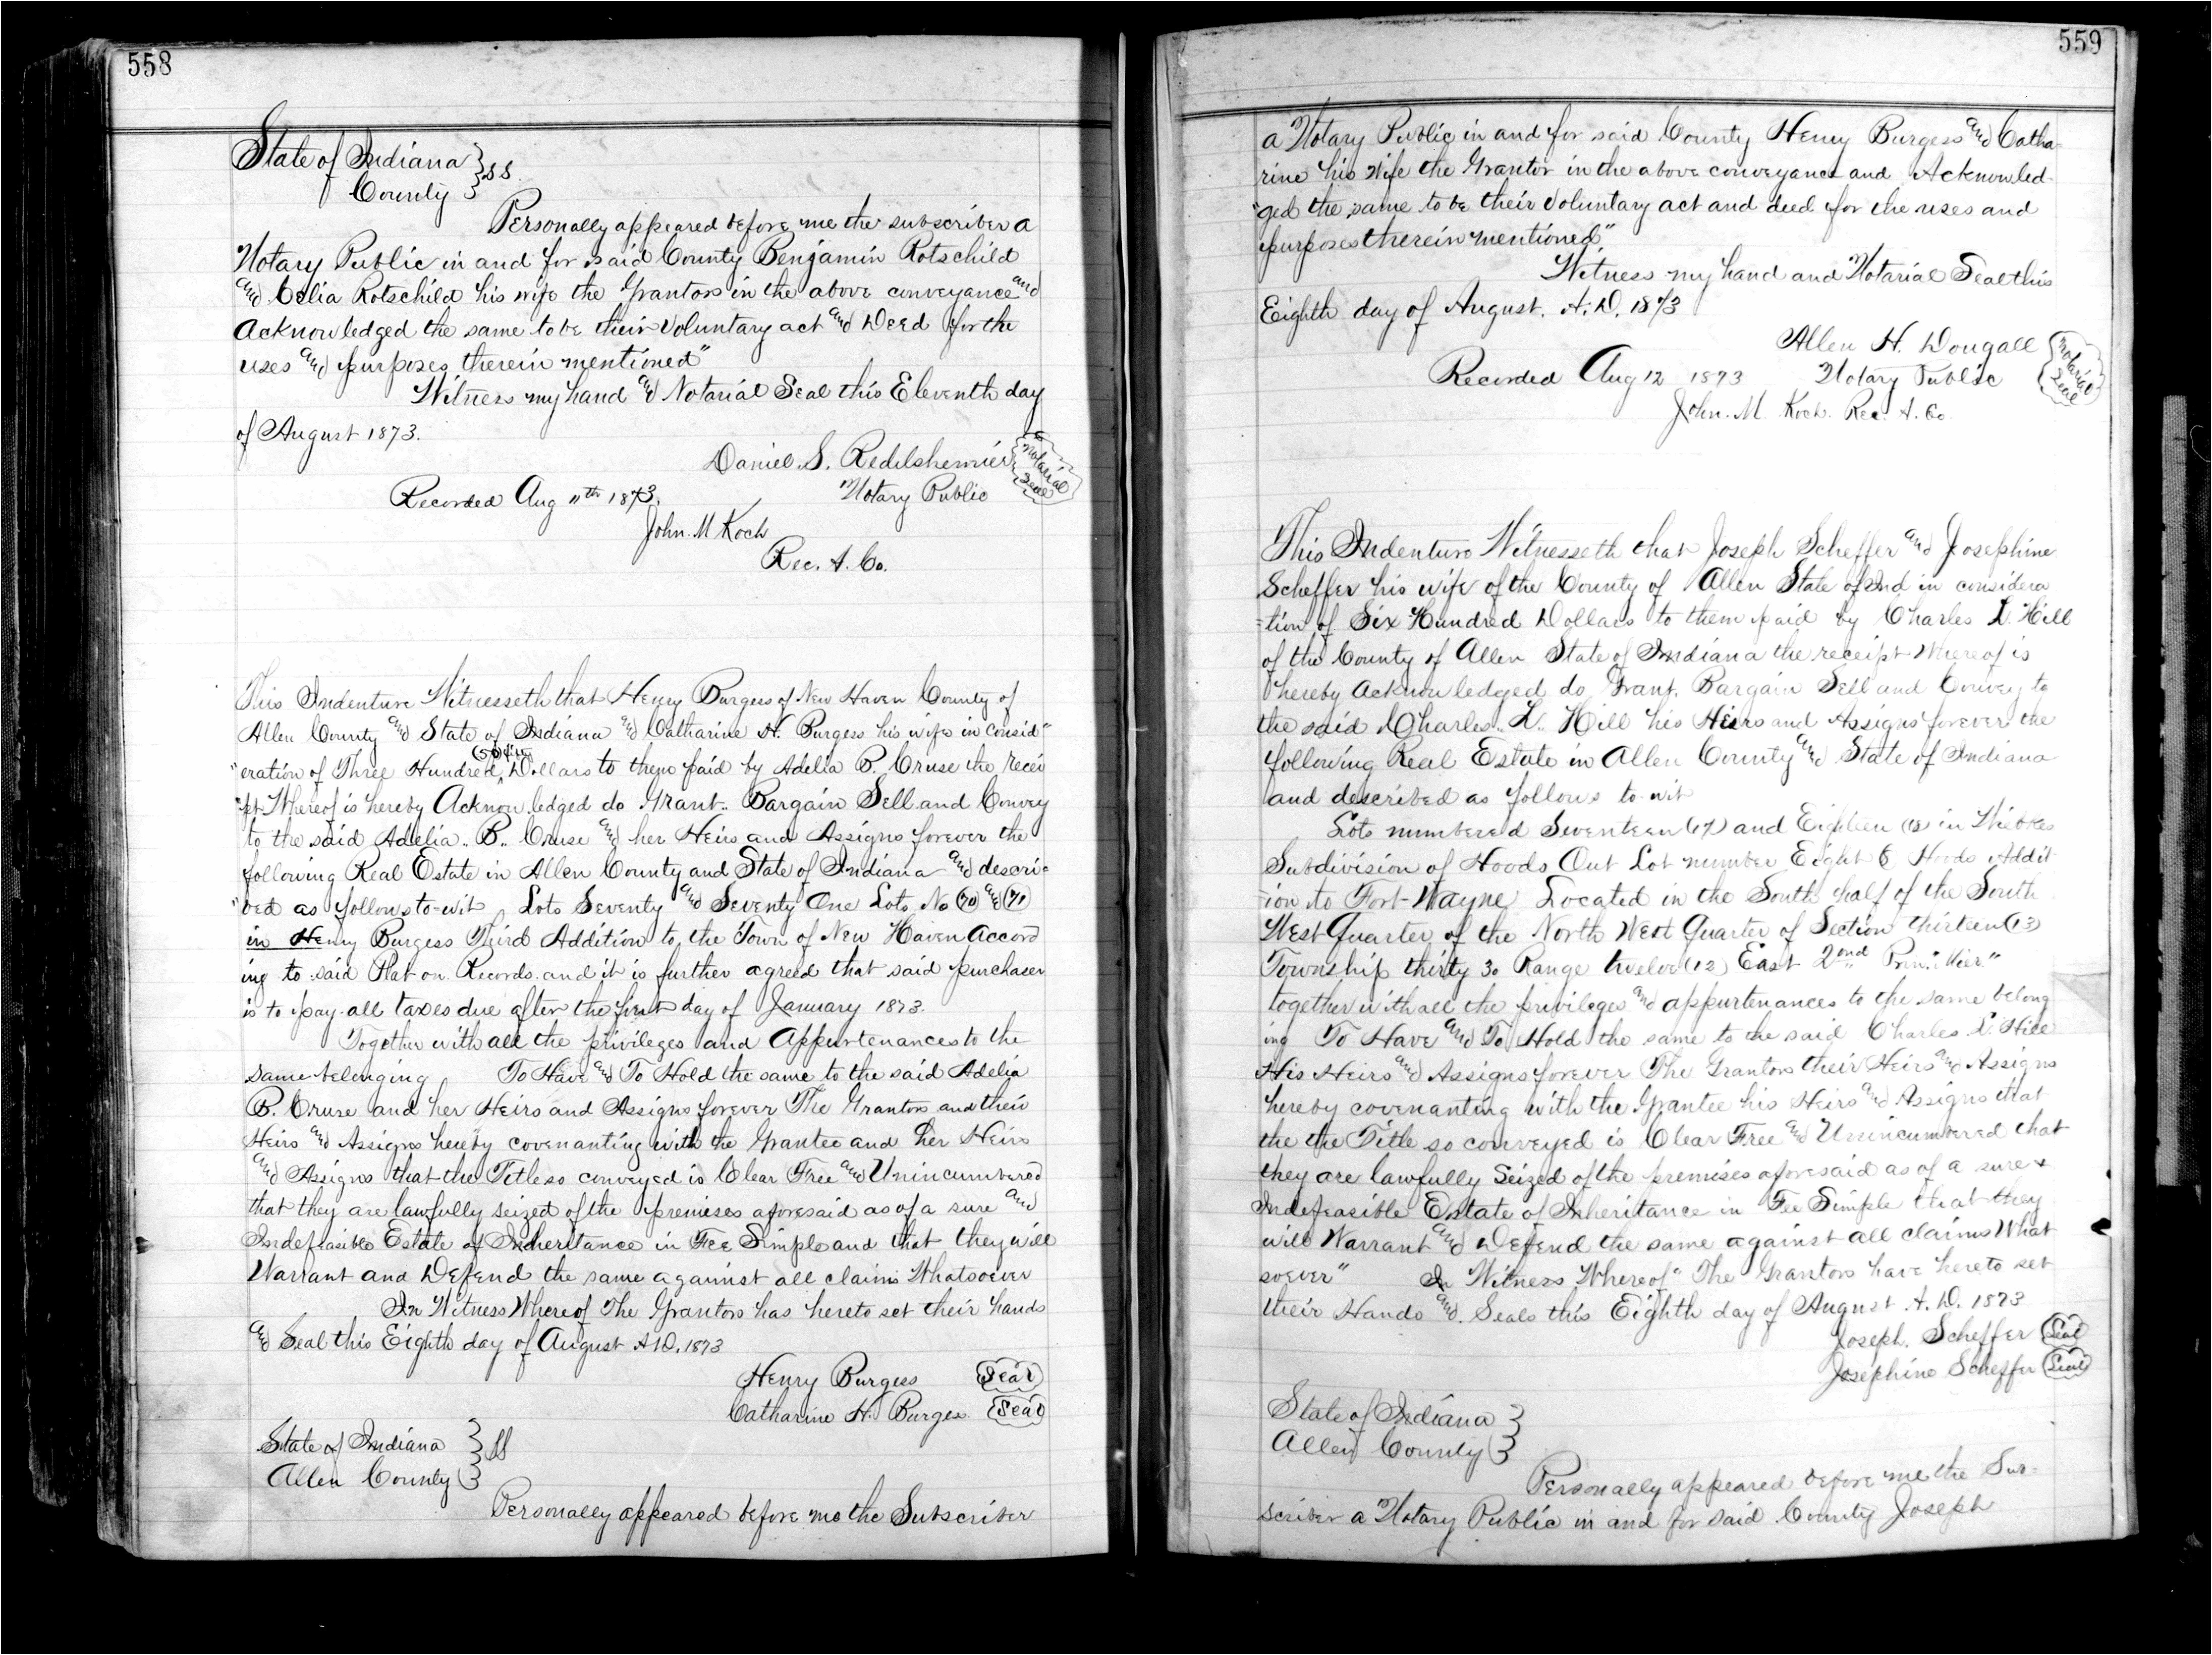 558
State of Indiana } SS.
County }
Personally appeared before me the subscriber a
Notary Public in and for said County Benjamin Rotschild
and Celia Rotschild his wife the Grantors in the above conveyance and
Acknowledged the same to be their Voluntary act and Deed for the
uses and purposes therein mentioned"
Witness my hand and Notarial Seal this Eleventh day
of August 1873.
Daniel S. Redelshemier
Notarial Seal
Recorded Aug 11th 1873. Notary Public
John. M Koch
Rec. A. Co.
This Indenture Witnesseth that Henry Burgess of New Haven County of
Allen County and State of Indiana and Catharine H. Burgess his wife in consid"
"eration of Three Hundred Dollars to them paid by Adelia B. Cruse the recei
"pt Whereof is hereby Acknowledged do Grant.. Bargain Sell and Convey
to the said Adelia.. B.. Cruse and her Heirs and Assigns forever the
following Real Estate in Allen County and State of Indiana and descri=
"bed as follows to-wit Lots Seventy and Seventy One Lots No (70) and (71)
in Henry Burgess Third Addition to the Town of New Haven Accord
ing to said Plat on Records and it is further agreed that said purchaser
is to pay all taxes due after the first day of January 1873.
Together with all the privileges and Appurtenances to the
same belonging To Have and To Hold the same to the said Adelia
B. Cruse and her Heirs and Assigns forever The Grantors and their
Heirs and Assigns hereby covenanting with the Grantee and her Heirs
and Assigns that the Title so conveyed is Clear Free and Unincumbered
that they are lawfully seized of the premises aforesaid as of a sure and
Indefeasible Estate of Inheritance in Fee Simple and that they will
Warrant and Defend the same against all claims Whatsoever
In Witness Whereof The Grantors has hereto set their hands
and Seal this Eighth day of August A.D. 1873
Henry Burgess Seal
Catharine H. Burges Seal
State of Indiana } SS
Allen County }
Personally appeared before me the Subscriber
559
a Notary Public in and for said County Henry Burgess and Catha-
rine his Wife the Grantor in the above conveyance and Acknowled-
"ged the same to be their Voluntary act and deed for the uses and
purposes therein mentioned"
Witness my hand and Notarial Seal this
Eighth day of August. A.D. 1873
Allen H. Dougall
Notarial Seal
Recorded Aug 12 1873 Notary Public
John. M Koch. Rec. A. Co.
This Indenture Witnesseth that Joseph Scheffer and Josephine
Scheffer his wife of the County of Allen State of Ind in considera
=tion of Six Hundred Dollars to them paid by Charles L. Hill
of the County of Allen State of Indiana the receipt Whereof is
hereby Acknowledged do Grant. Bargain Sell and Convey to
the said Charles.. L.. Hill his Heirs and Assigns forever the
following Real Estate in Allen County and State of Indiana
and described as follows to-wit
Lots numbered Seventeen (17) and Eighteen (18) in
Subdivision of Hoods Out Lot number Eight Hoods Addit
=ion to Fort-Wayne Located in the South half of the South
West Quarter of the North West Quarter of Section thirteen (13)
Township thirty 30 Range twelve (12) East 2nd Prin." Mier."
together with all the privileges and appurtenances to the same belong
ing To Have and To Hold the same to the said Charles L. Hill
His Heirs and Assigns forever The Grantors their Heirs and Assigns
hereby covenanting with the Grantee his Heirs and Assigns that
the the Title so conveyed is Clear Free and Unincumbered that
they are lawfully Seized of the premises aforesaid as of a sure &
Indefeasible Estate of Inheritance in Fee Simple that they
will Warrant and Defend the same against all claims What
soever" In Witness Whereof" The Grantors have hereto set
their Hands and. Seals this Eighth day of August A.D. 1873
Joseph. Scheffer Seal
Josephine Scheffer Seal
State of Indiana }
Allen County }
Personally appeared before me the Sub-
scriber a Notary Public in and for said County Joseph